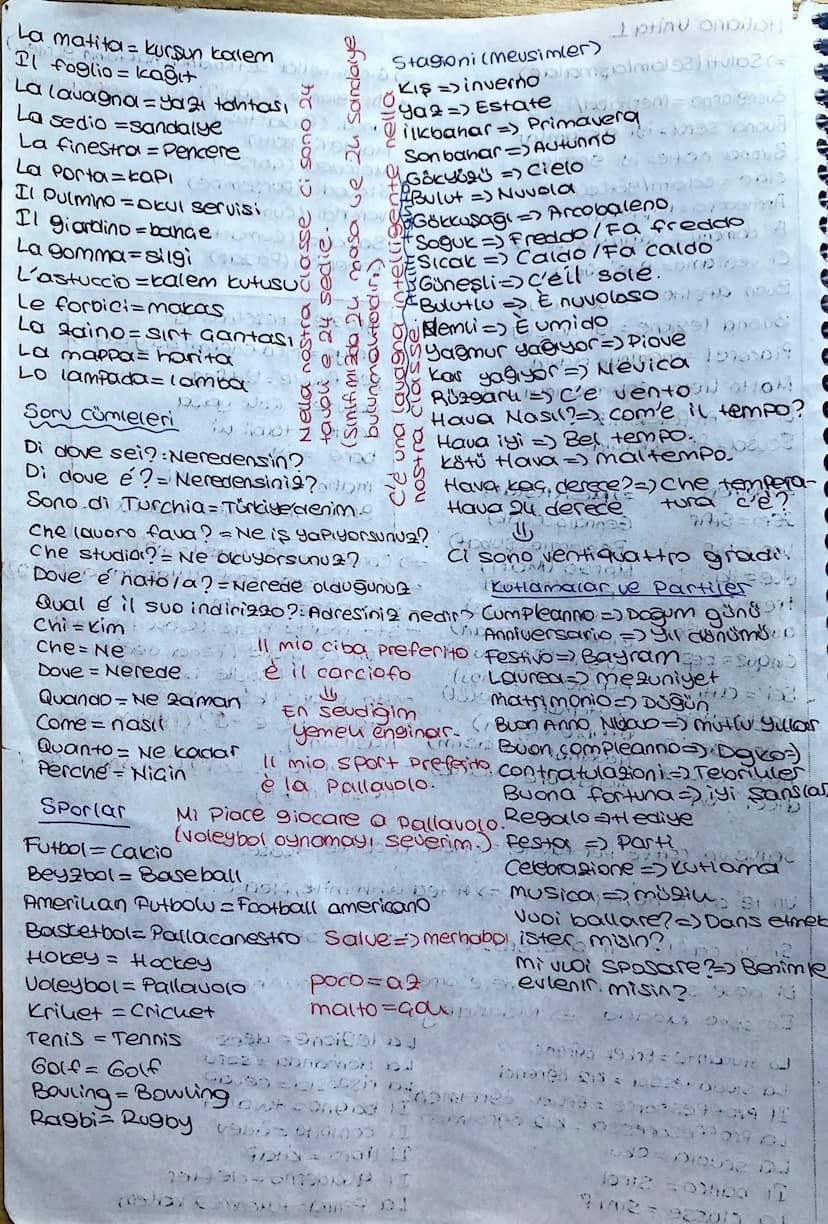 La matita = kurşun kalem
Il foglio = kağıt
La lavagna = yazı tahtası
La sedia = sandalye
La finestra = Pencere
La Porta = kapı
Il Pulmino = okul servisi
Il giardino = bahçe
La gomma = silgi
L'astuccio = kalem kutusu
Le forbici = makas
La zaino = sırt çantası
La mappa = harita
Lo lampada = lamba
Soru cümleleri
Di dove sei? : Neredensin?
Di dove é? = Neredensiniz?
Sono di Turchia = Türkiye'denim.
Che lavoro fava? = Ne iş yapıyorsunuz?
Che studia? = Ne okuyorsunuz?
Dove é nato/a? = Nerede olduğunuz
Qual é il suo indirizzo? : Adresiniz nedir
Chi = Kim
Che = Ne
Dove = Nerede
Quando = Ne zaman
Come = nasıl
Quanto = Ne kadar
Perché = Niçin
Sporlar
Futbol = Calcio
Beyzbol = Baseball
Amerikan Futbolu = Football americano
Basketbol = Pallacanestro
Hokey = Hockey
Voleybol = Pallavolo
Kriket = Cricket
Tenis = Tennis
Golf = Golf
Bovling = Bowling
Ragbi = Rugby
Nella nostra classe ci sono 24
tavoli e 24 sedie.
(Sınıfımızda 24 masa ve 24 sandalye
bulunmaktadır.)
C'é una lavagna intelligente nella
nostra classe.
Il mio ciba preferito
é il carciofo
En sevdiğim
yemek enginar.
Il mio sport preferito
é la Pallavolo.
Mi Piace giocare a Pallavolo.
(voleybol oynamayı severim.)
Salve => merhaba
poco = az
malto = çok
Stagioni (mevsimler)
Kış => inverno
Yaz => Estate
ilkbahar => Primavera
Sonbahar => Autunno
Gökyüzü => Cielo
Bulut => Nuvola
Gökkuşağı => Arcobaleno
Soğuk => Freddo / Fa freddo
Sıcak => Caldo / Fa caldo
Güneşli => C'é il sole.
Bulutlu => È nuvoloso
Nemli => È umido
Yağmur yağıyor => Piove
Kar yağıyor => Nevica
Rüzgarlı => C'é vento
Hava Nasıl? => com'e il tempo?
Hava iyi => Bel tempo.
kötü Hava => maltempo.
Hava kaç derece? => Che tempera-
tura c'é?
Hava 24 derece
Ci sono ventiquattro gradi.
Kutlamalar ve Partiler
Cumpleanno => Doğum günü
Anniversario => Yıl dönümü
Festivo => Bayram
Laurea => mezuniyet
matrimonio => Düğün
Buon Anno => mutlu yıllar
Buon compleanno =>
Contratulazioni => Tebrikler
Buona fortuna => iyi şanslar
Regalo => Hediye
Festa => Parti
Celebrazione => kutlama
musica => müzik
Vuoi ballare? => Dans etmek
ister misin?
mi vuoi sposare? => Benimle
evlenir misin?